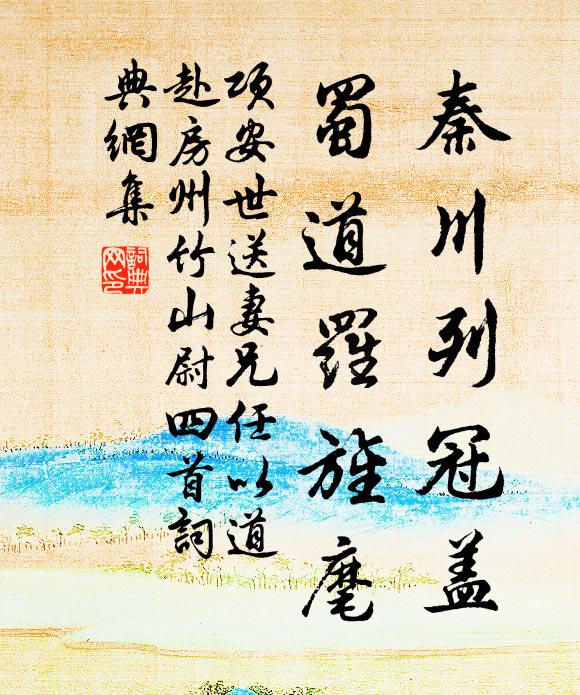 秦川列冠盖
蜀道羅旌麾
項安世送妻兄任以道
赴房州竹山尉四首詞
典網集
詞典网印